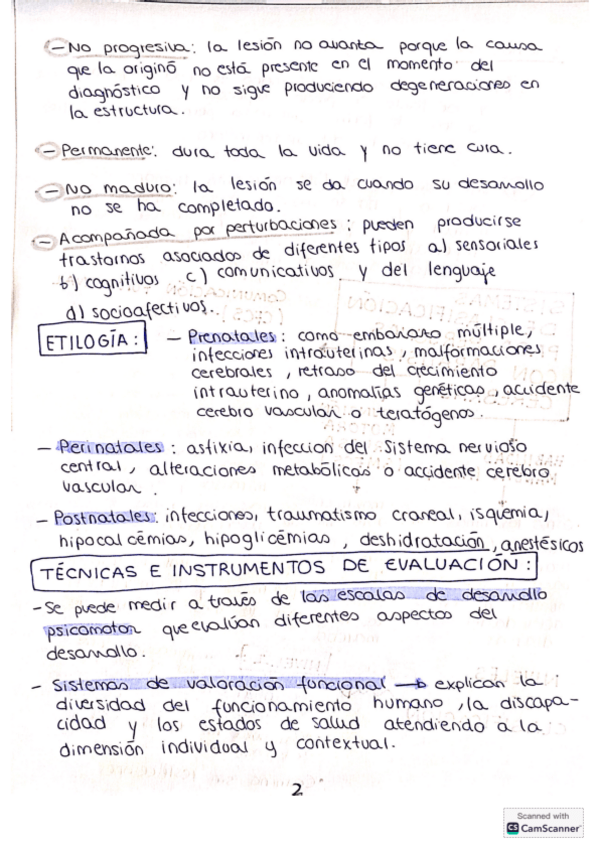 – No progresiva: la lesión no avanta porque la causa
que la originó no está presente en el momento del
diagnóstico y no sigue produciendo degeneraciones en
la estructura.
– Permanente: dura toda la vida y no tiene cura.
– No maduro: la lesión se da cuando su desarrollo
no se ha completado.
– Acompañada por perturbaciones: pueden producirse
trastornos asociados de diferentes tipos a) sensoriales
b) cognitivos c) comunicativos y del lenguaje
d) socioafectivos.
ETILOGÍA: – Prenatales: como embarazo múltiple,
infecciones intrauterinas, malformaciones
cerebrales, retraso del crecimiento
intrauterino, anomalías genéticas, accidente
cerebro vascular o teratógenos.
– Perinatales: asfixia, infeccion del sistema nervioso
central, alteraciones metabólicas o accidente cerebro
vascular.
– Postnatales: infecciones, traumatismo craneal, isquemia,
hipocalcémias, hipoglicémias, deshidratación, anestésicos
TÉCNICAS E INSTRUMENTOS DE EVALUACIÓN:
– Se puede medir a través de las escalas de desarrollo
psicomotor que evalúan diferentes aspectos del
desarrollo.
– Sistemas de valoración funcional → explican la
diversidad del funcionamiento humano, la discapa-
cidad y los estados de salud atendiendo a la
dimensión individual y contextual.
2
Scanned with
CS CamScanner